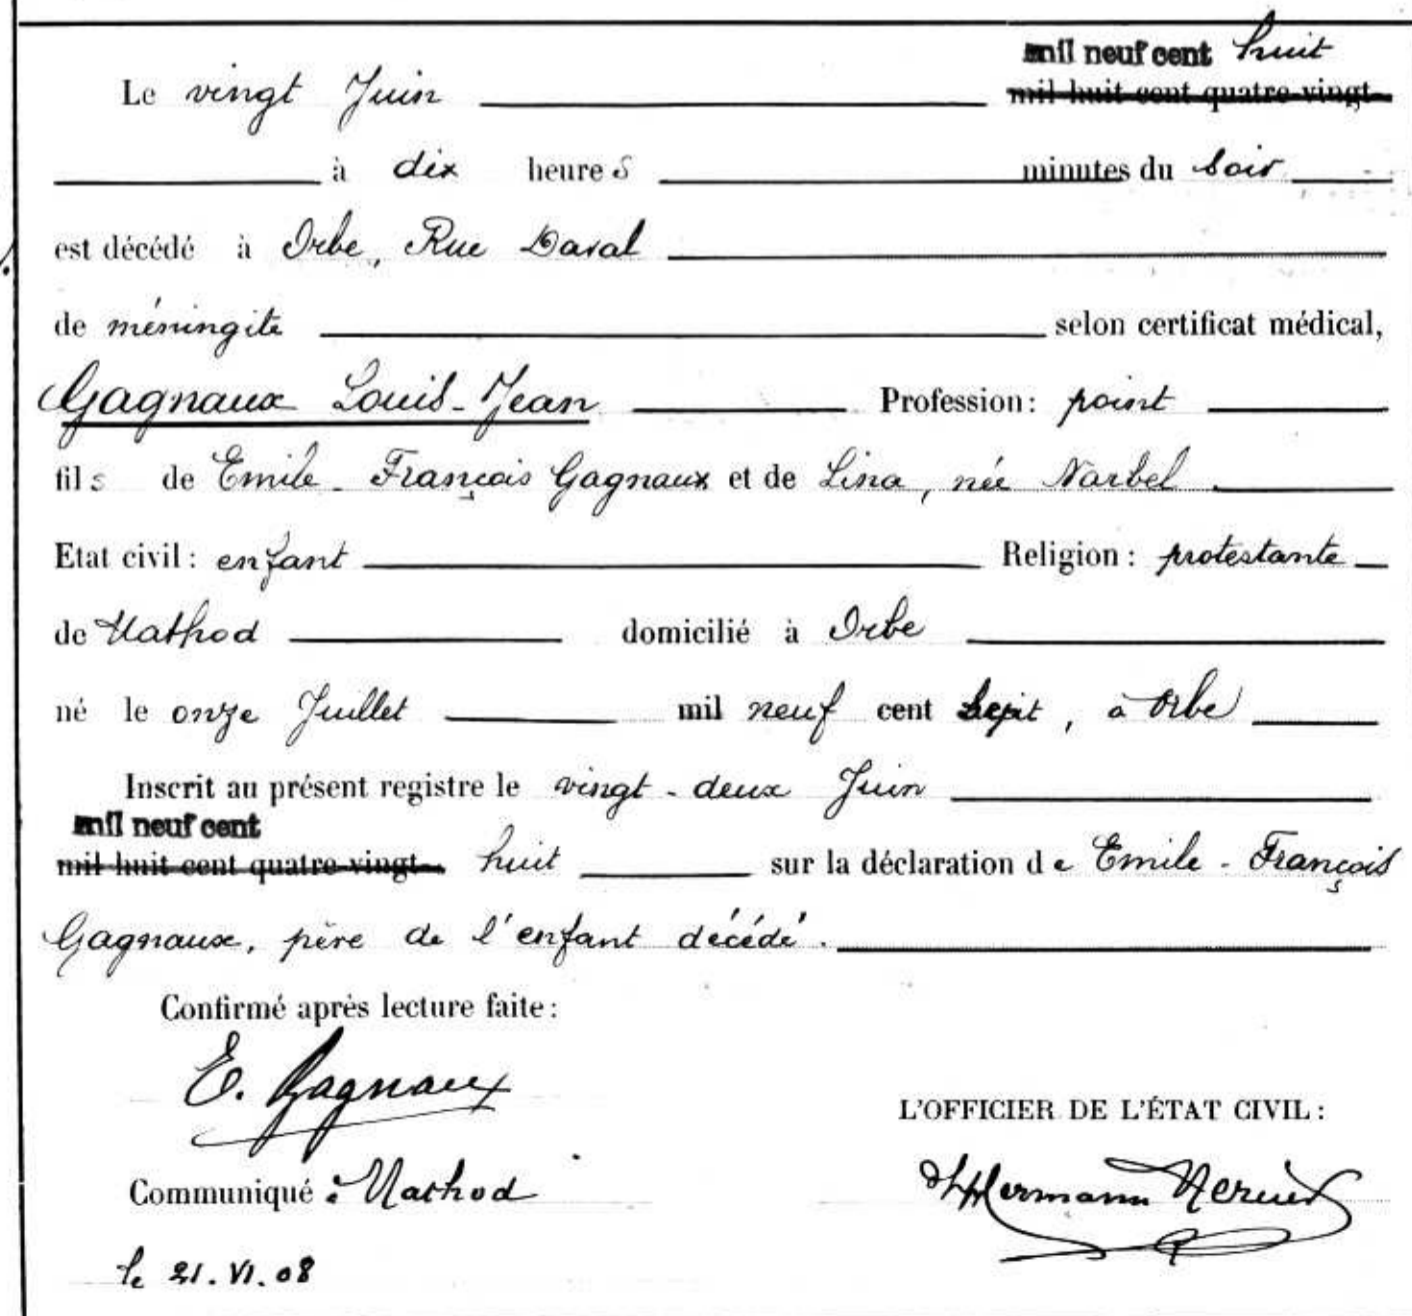 mil neuf cent huit
Le vingt Juin mil huit cent quatre-vingt-
à dix heures minutes du soir
est décédé à Orbe, Rue Davall
de méningite selon certificat médical,
Gagnaux Louis-Jean Profession: point
fils de Emile-François Gagnaux et de Lina, née Narbel
Etat civil: enfant Religion: protestante
de Mathod domicilié à Orbe
né le onze Juillet mil neuf cent sept, à Orbe
Inscrit au présent registre le vingt-deux Juin
mil neuf cent
mil huit cent quatre-vingt- huit sur la déclaration de Emile-François
Gagnaux, père de l'enfant décédé.
Confirmé après lecture faite:
E. Gagnaux
L'OFFICIER DE L'ÉTAT CIVIL:
Communiqué à Mathod Hermann
le 21.VI.08